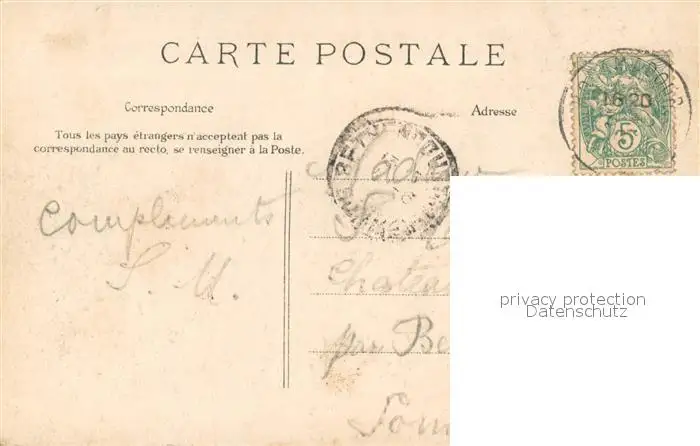 CARTE POSTALE
Correspondance
Adresse
Tous les pays étrangers n'acceptent pas la
correspondance au recto, se renseigner à la Poste.
16 20
5
POSTES
Compliments
S. M.
Madame
Chateau
par Be
Som
privacy protection
Datenschutz